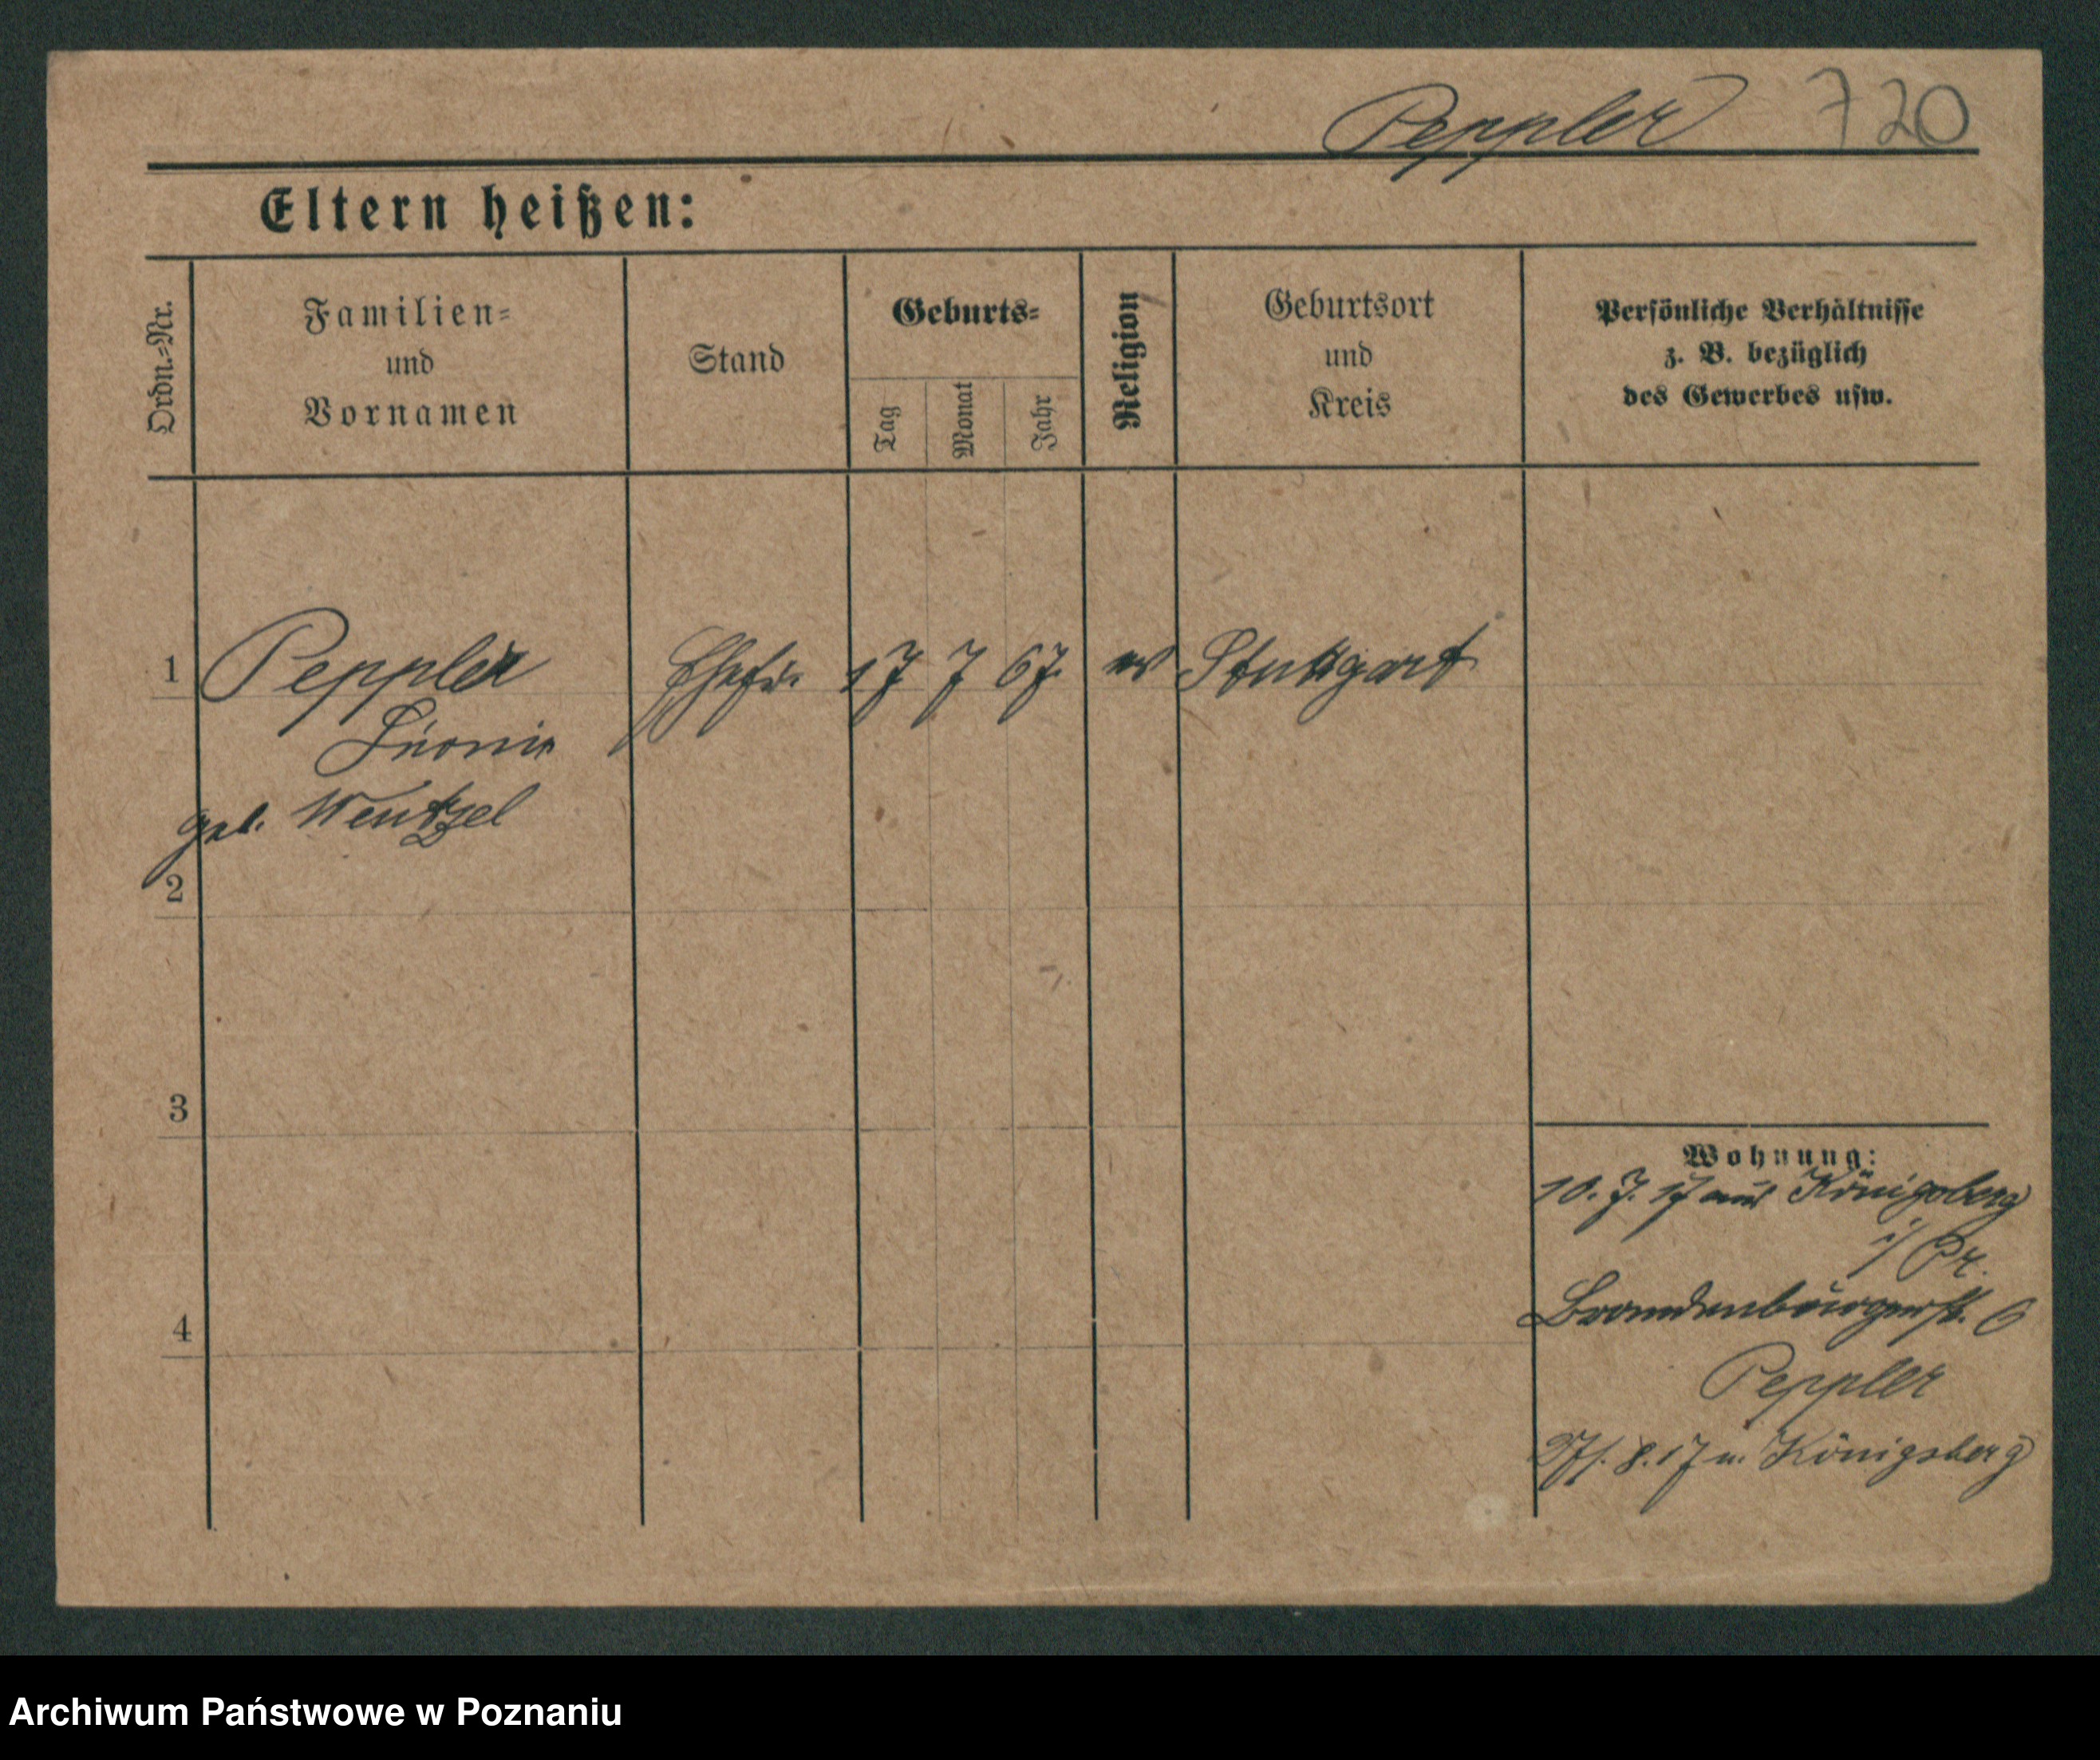 Peppler 720
Eltern heißen:
Ordn.=Nr.
Familien=
und
Vornamen
Stand
Geburts=
Tag
Monat
Jahr
Religion
Geburtsort
und
Kreis
Persönliche Verhältnisse
z. B. bezüglich
des Gewerbes usw.
1 Peppler Ehefr. 17 7 67. ev Stuttgart
geb. Wentzel
2
3
4
Wohnung:
10. 7. 17 aus Königsberg
i/Pr.
Brandenburgerstr. 6
Peppler
8. 17 n. Königsberg
Archiwum Państwowe w Poznaniu